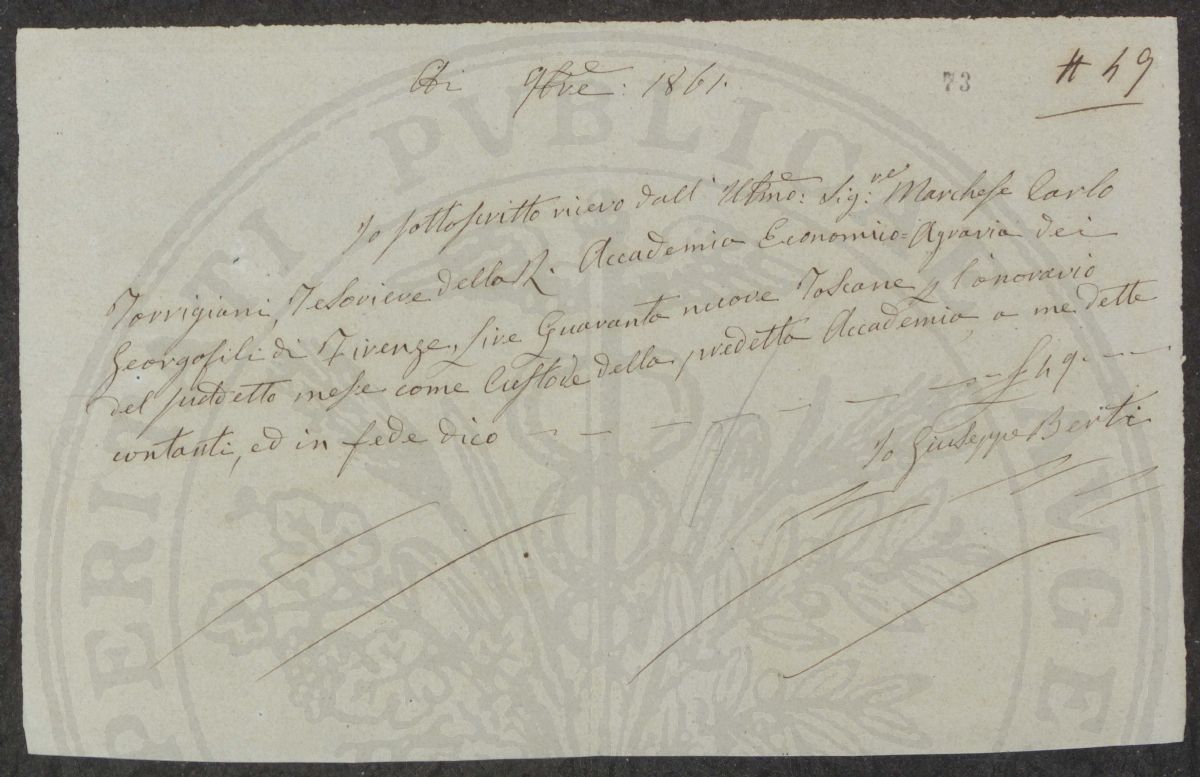 Adi 9bre: 1861.
73
# 49
Io sottoscritto ricevo dall' Illmo: Sig:re Marchese Carlo
Torrigiani, Tesoriere della R. Accademia Economico=Agraria dei
Georgofili di Firenze, Lire Quaranta nuove Toscane p l'onorario
del suddetto mese come Custode della predetta Accademia, a me dette
contanti, ed in fede dico — — — — — — — £ 49. — —
Io Giuseppe Berti
PERITATI PVBLICAE AVGE